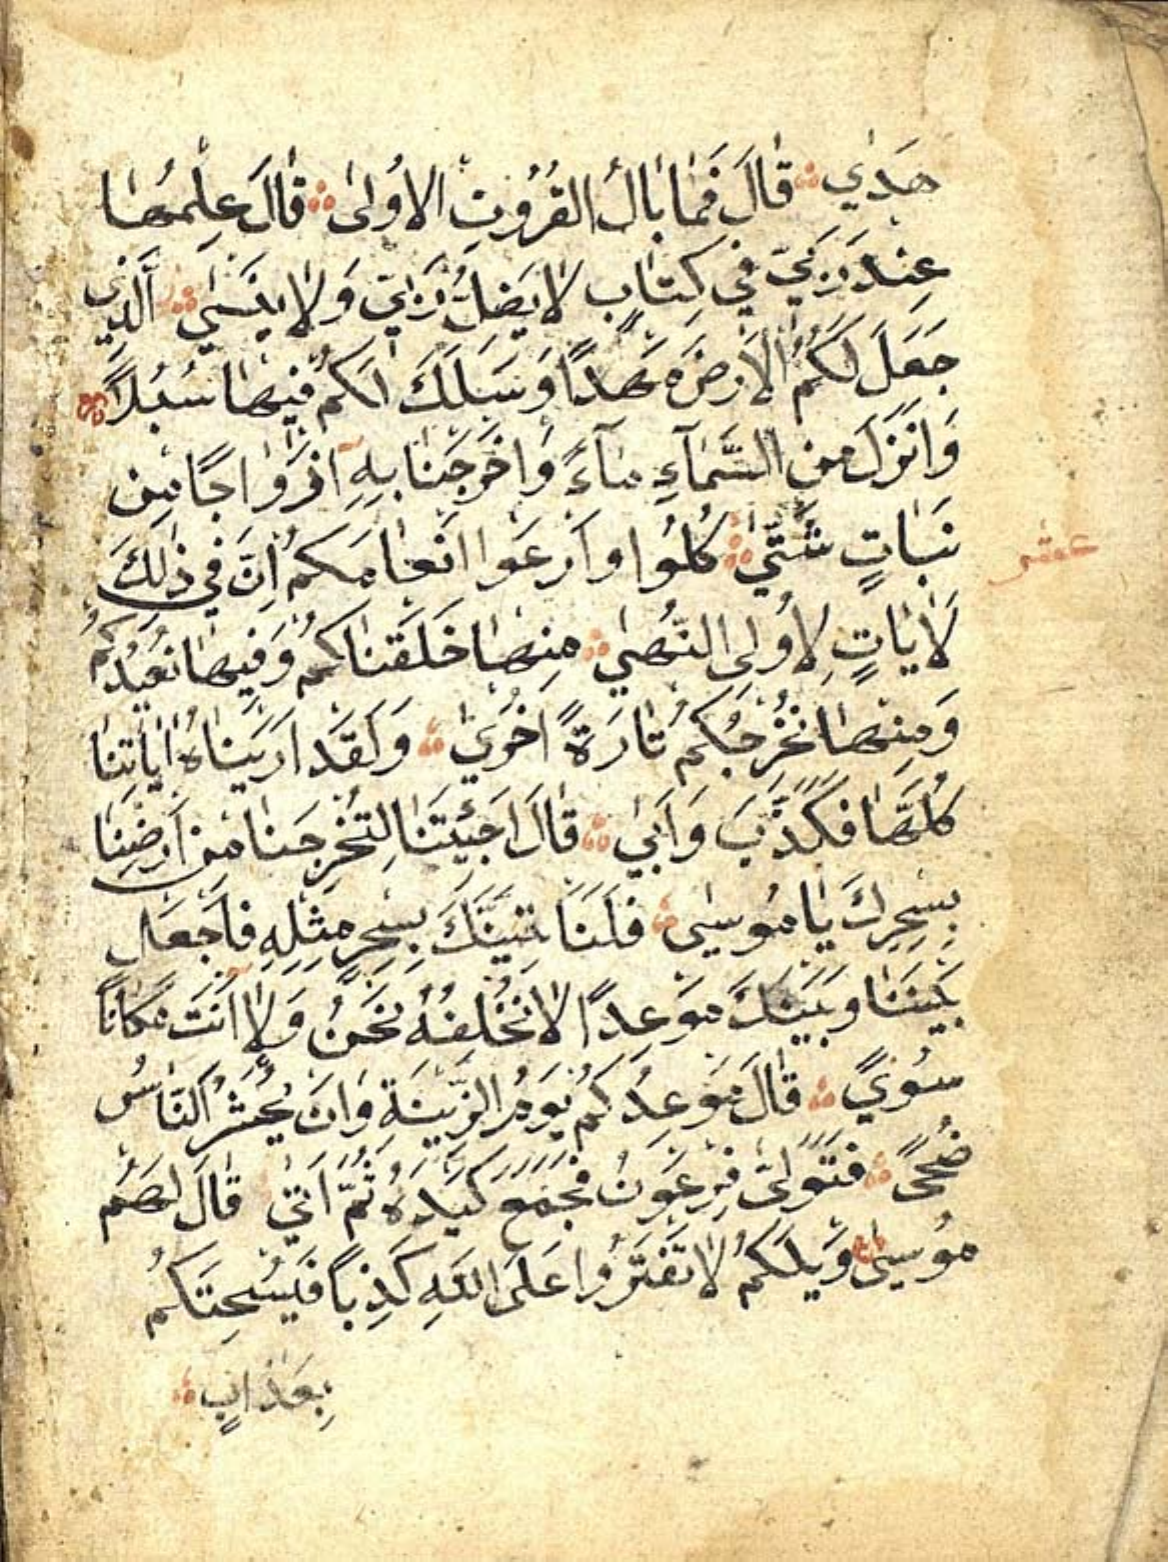 هَدٰي قَالَ فَمٰا بٰالُ الْقُرُونِ الْاُولىٰ قٰالَ عِلْمُهٰا
عِنْدَ رَبّي في كِتٰابٍ لٰا يَضِلُّ رَبّي وَلٰا يَنْسٰي اَلَّذي
جَعَلَ لَكُمُ الْاَرْضَ مَهْدًا وَسَلَكَ لَكُمْ فيهٰا سُبُلًا
وَاَنْزَلَ مِنَ السَّمٰآءِ مٰآءً وَاَخْرَجْنٰا بِهِ اَزْوٰاجًا مِنْ
نَبٰاتٍ شَتّٰي كُلُوا وَارْعَوْا اَنْعٰامَكُمْ اِنَّ في ذٰلِكَ
لَاٰيٰاتٍ لِاُولِى النُّهٰي مِنْهٰا خَلَقْنٰاكُمْ وَفيهٰا نُعيدُكُمْ
وَمِنْهٰا نُخْرِجُكُمْ تٰارَةً اُخْرٰي وَلَقَدْ اَرَيْنٰاهُ اٰيٰاتِنٰا
كُلَّهٰا فَكَذَّبَ وَاَبٰي قٰالَ اَجِئْتَنٰا لِتُخْرِجَنٰا مِنْ اَرْضِنٰا
بِسِحْرِكَ يٰا مُوسىٰ فَلَنَاْتِيَنَّكَ بِسِحْرٍ مِثْلِهِ فَاجْعَلْ
بَيْنَنٰا وَبَيْنَكَ مَوْعِدًا لٰا نُخْلِفُهُ نَحْنُ وَلٰا اَنْتَ مَكٰانًا
سُوًي قٰالَ مَوْعِدُكُمْ يَوْمُ الزّينَةِ وَاَنْ يُحْشَرَ النّٰاسُ
ضُحًي فَتَوَلّىٰ فِرْعَوْنُ فَجَمَعَ كَيْدَهُ ثُمَّ اَتٰي قٰالَ لَهُمْ
مُوسىٰ وَيْلَكُمْ لٰا تَفْتَرُوا عَلَى اللّٰهِ كَذِبًا فَيُسْحِتَكُمْ
بِعَذٰابٍ
عشر